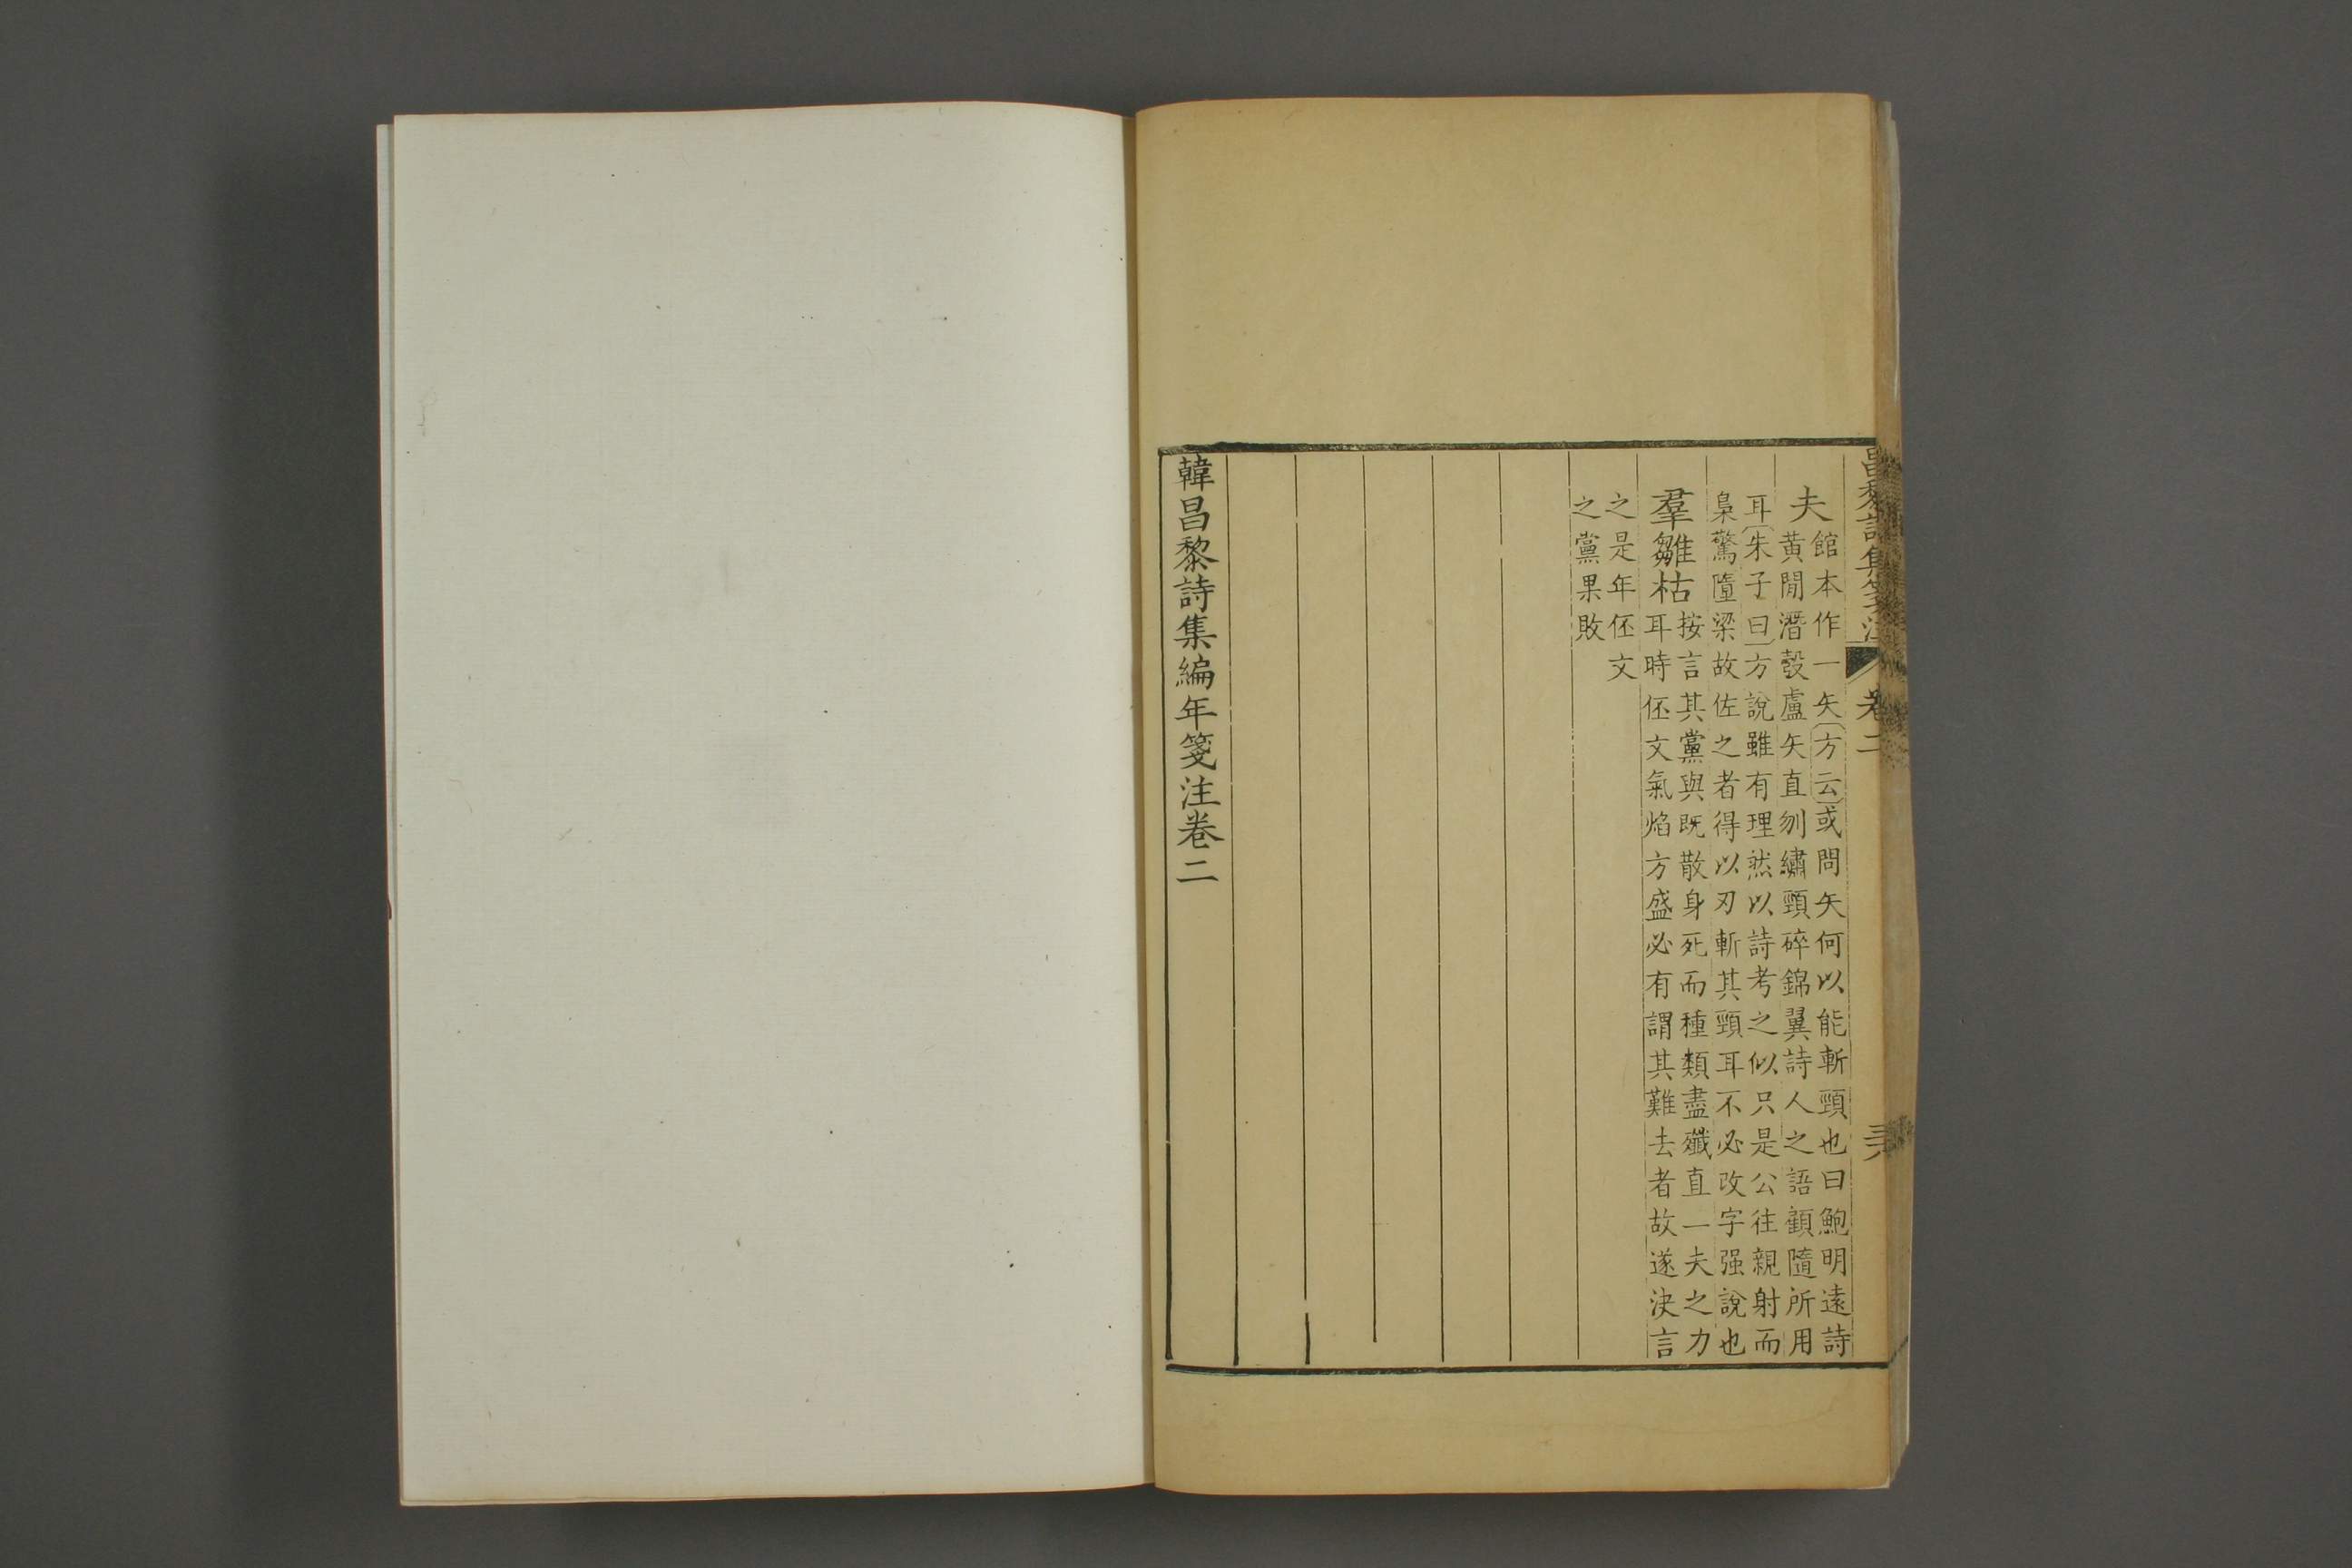 昌黎詩集箋注 卷二
夫館本作一矢〔方云〕或問矢何以能斬頸也曰鮑明遠詩
黃閒潛彀盧矢直刎繡頸碎錦翼詩人之語顧隨所用
耳〔朱子曰〕方說雖有理然以詩考之似只是公往親射而
梟驚墮梁故佐之者得以刃斬其頸耳不必改字强說也
羣雛枯按言其黨與既散身死而種類盡殲直一夫之力
耳時伾文氣焰方盛必有謂其難去者故遂決言
之是年伾文
之黨果敗
韓昌黎詩集編年箋注卷二